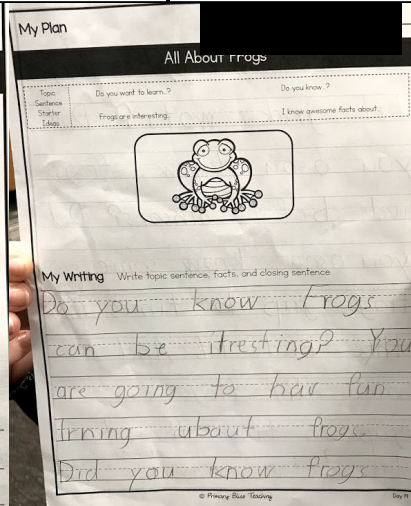 My Plan
All About Frogs
Topic Sentence Starter Ideas
Do you want to learn..?
Do you know..?
Frogs are interesting.
I know awesome facts about..
My Writing Write topic sentence, facts, and closing sentence
Do you know Frogs
can be itresting? You
are going to hav fun
lrning ubout frogs
Did you know frogs
© Primary Bliss Teaching
Day 19